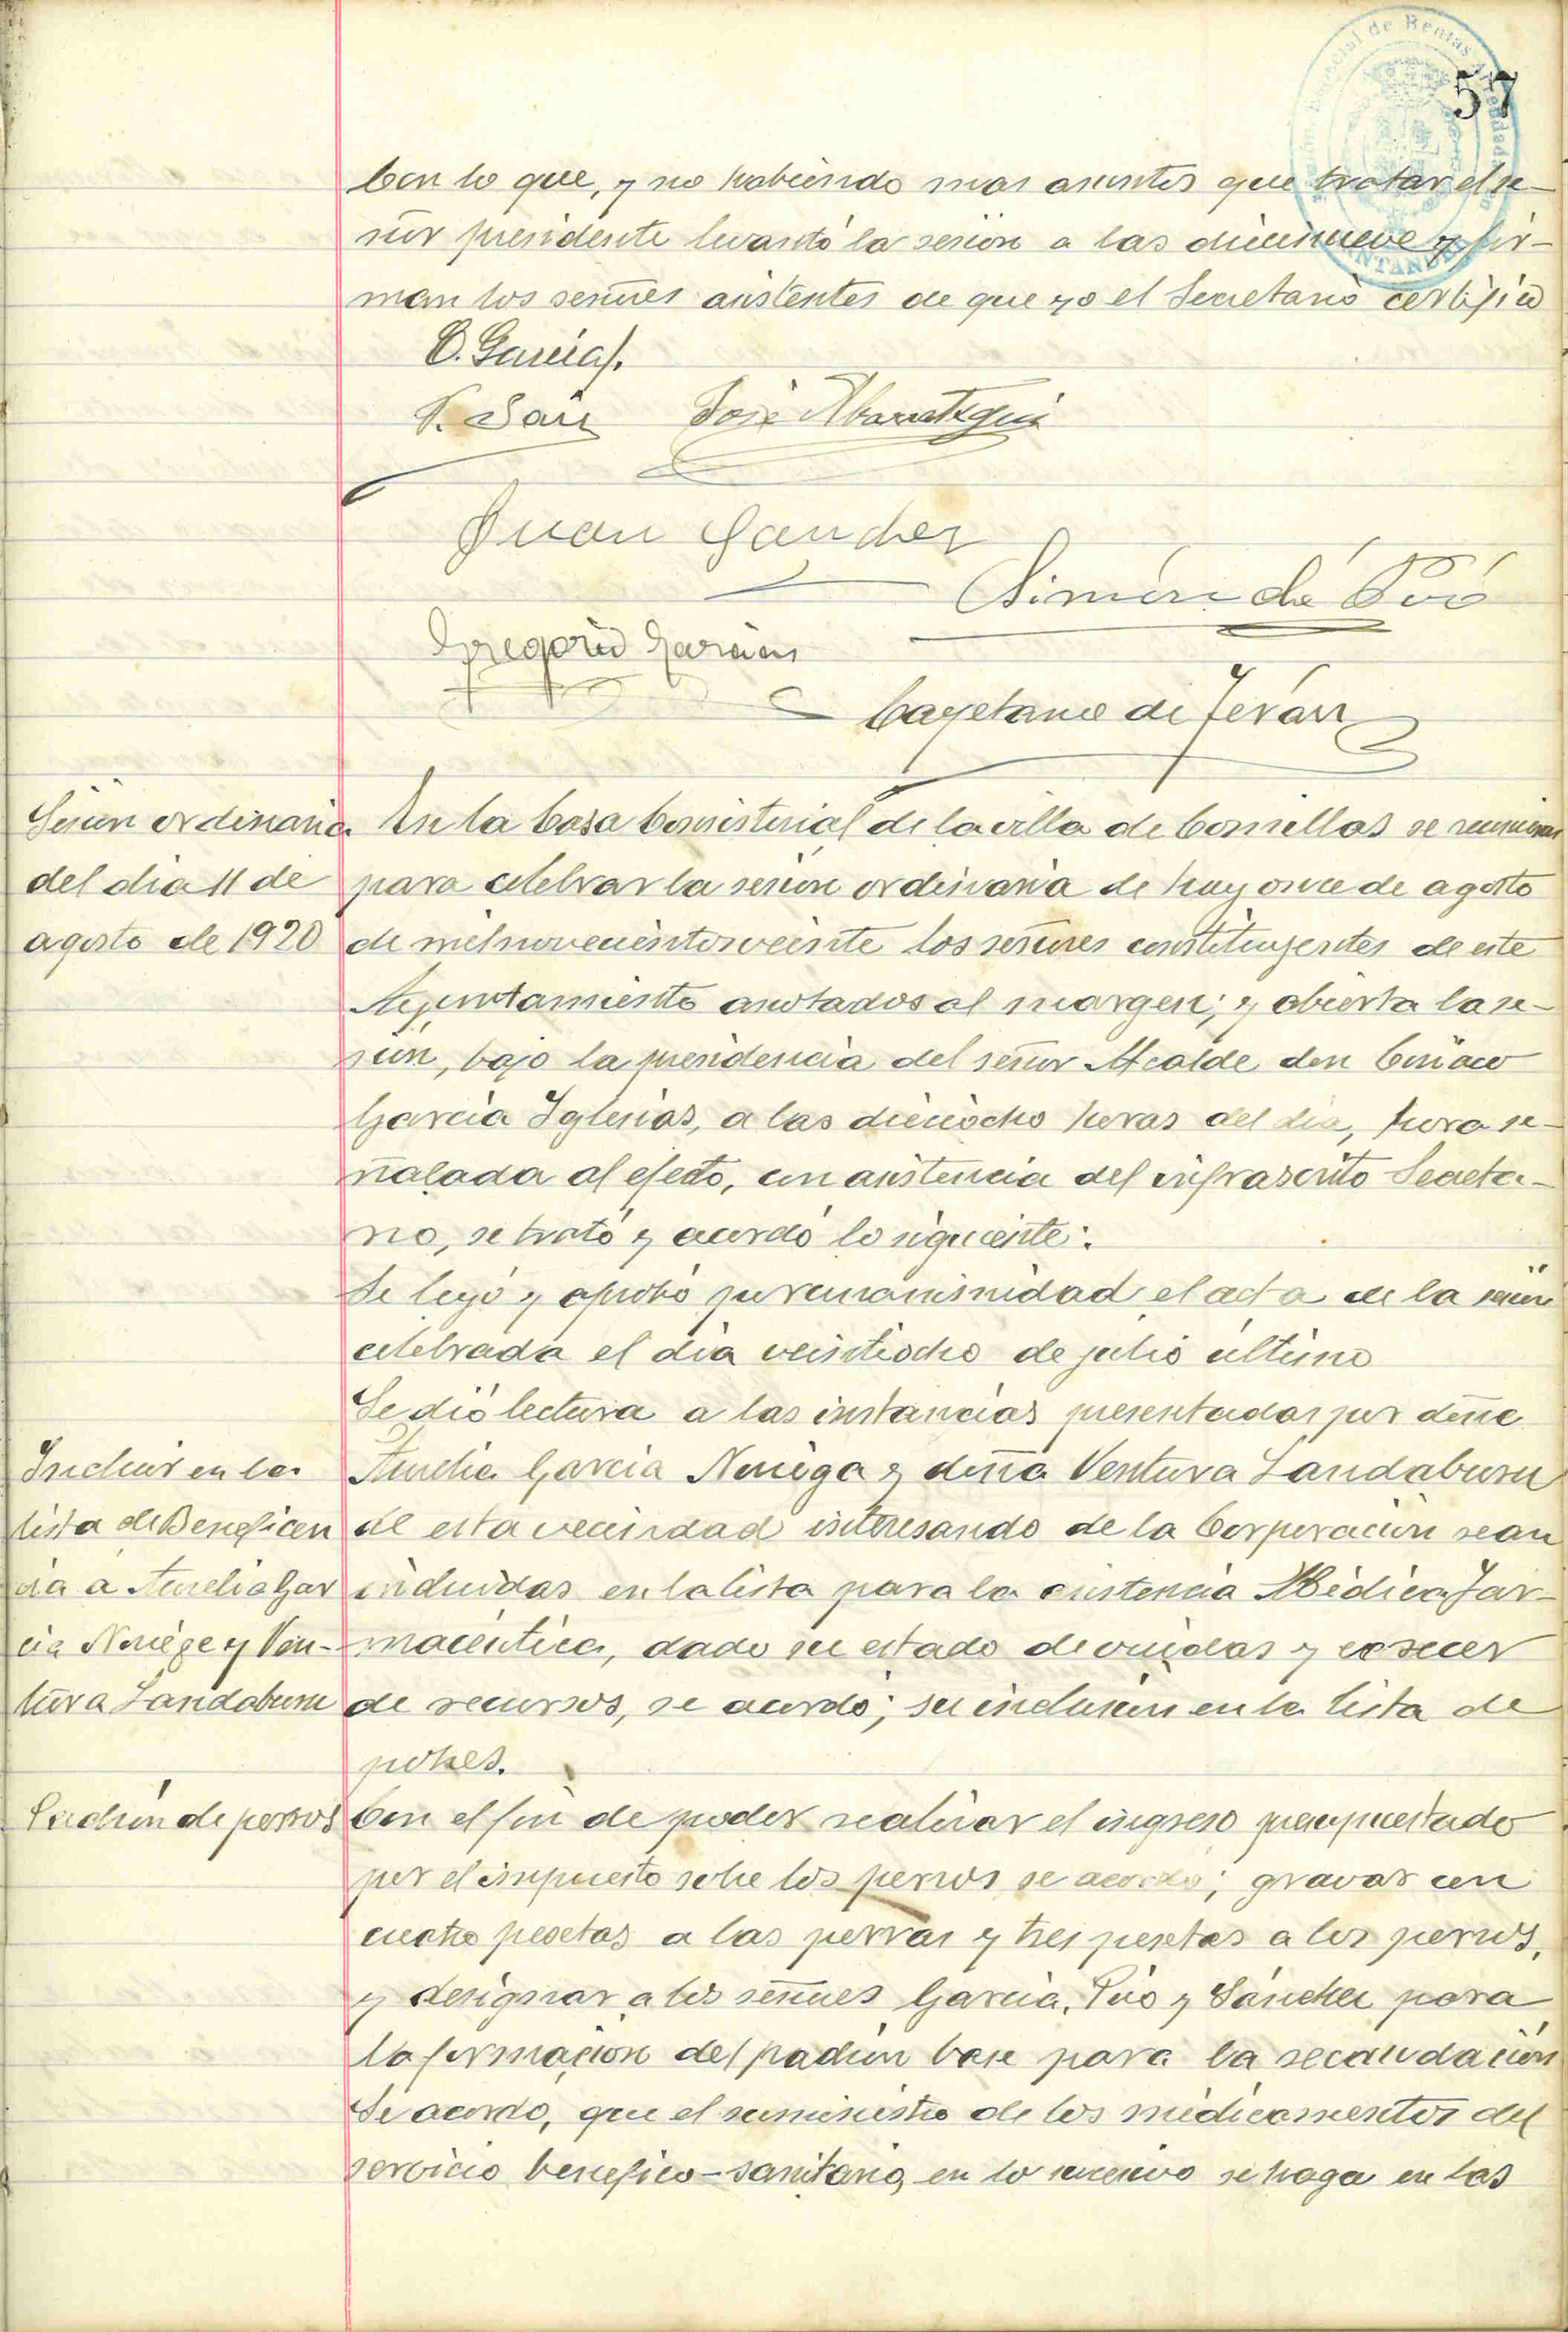 57
Con lo que, y no habiendo mas asuntos que tratar el se-
ñor presidente levantó la sesión a las diecinueve y fir-
man los señores asistentes de que yo el Secretario certifico
C. García
José Abarategui
Juan Sanchez
Simón de Póo
Gregorio
Cayetano de Terán
Sesión ordinaria
del dia 11 de
agosto de 1920
En la Casa Consistorial de la villa de Comillas se reunieron
para celebrar la sesión ordinaria de hoy once de agosto
de milnovecientosveinte los señores constituyentes de este
Ayuntamiento anotados al margen; y abierta la se-
sión, bajo la presidencia del señor Alcalde don Ciriaco
García Iglesias, a las dieciocho horas del dia, hora se-
ñalada al efecto, con asistencia del infrascrito Secreta-
rio, se trató y acordó lo siguiente:
Se leyó y aprobó por unanimidad el acta de la sesión
celebrada el dia veintiocho de julio último
Se dió lectura a las instancias presentadas por doña
Incluir en la
lista de Beneficen
cia a Aurelia Gar
cia Noriega y Ven-
tura Landaburu
Aurelia García Noriega y doña Ventura Landaburu
de esta vecindad interesando de la Corporación sean
incluidas en la lista para la asistencia Médica Far-
macéutica, dado su estado de viudas y carecer
de recursos, se acordó; su inclusión en la lista de
pobres.
Padrón de perros
Con el fin de poder realizar el ingreso presupuestado
por el impuesto sobre los perros se acordó; gravar con
cuatro pesetas a las perras y tres pesetas a los perros,
y designar a los señores García, Póo y Sánchez para
la formación del padrón base para la recaudación
Se acordo, que el suministro de los medicamentos del
servicio benefico-sanitario, en lo sucesivo se haga en las